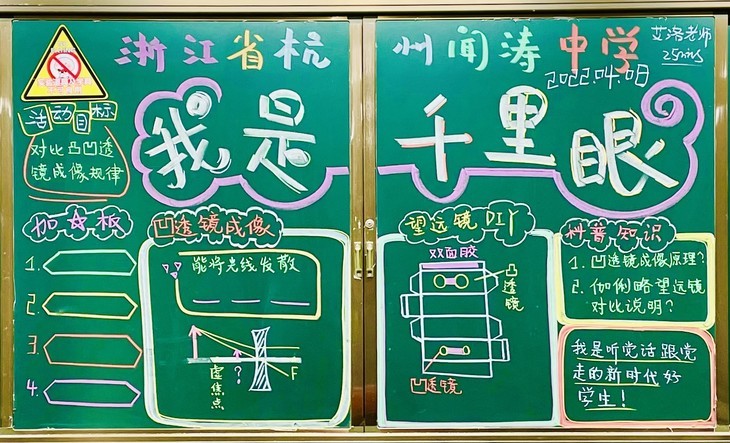 浙江省杭州闻涛中学
艾洛老师
25mins
2022.04.08
我是千里眼
活动目标
对比凸凹透
镜成像规律
加☆板
1.
2.
3.
4.
凹透镜成像
能将光线发散
虚焦点
?
F
望远镜DIY
双面胶
凸透镜
凹透镜
科普知识
1. 凹透镜成像原理?
2. 伽俐略望远镜
对比说明?
我是听党话跟党
走的新时代好
学生!